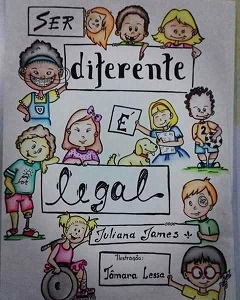 SER
diferente
É
legal
Juliana James
Ilustração:
Tâmara Lessa